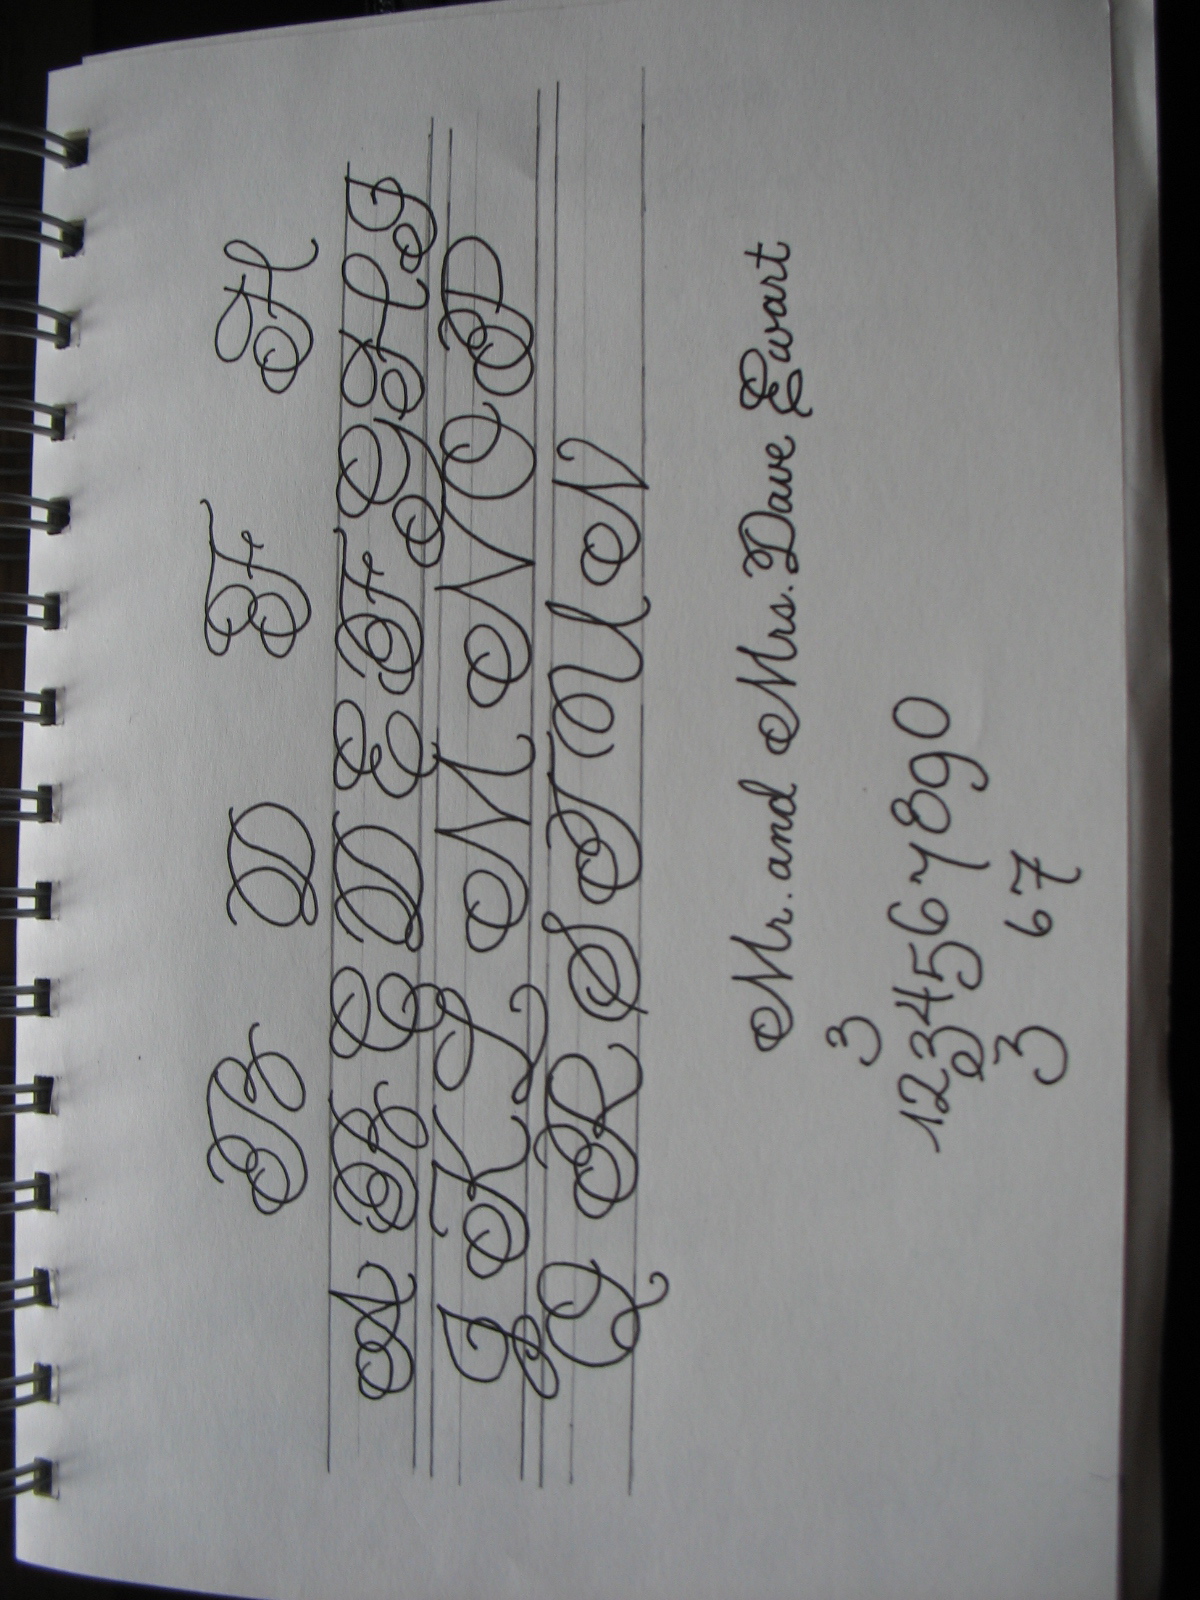 B D F H
A B C D E F G H I
J K L M N O P
Q R S T U N
Mr. and Mrs. Dave Ewart
3
1234567890
3 67